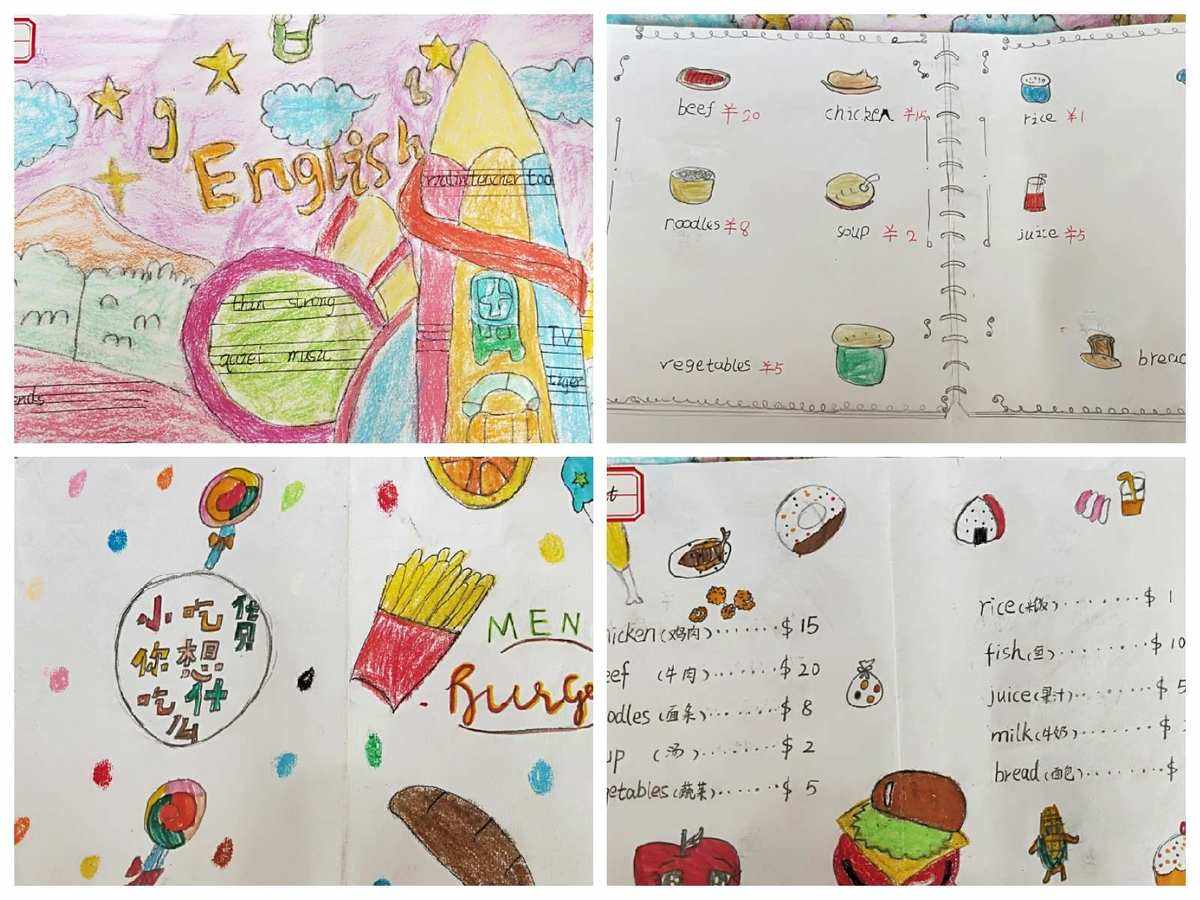 English
thin strong
music
TV
tiger
beef ¥20
chicken ¥15
rice ¥1
noodles ¥8
soup ¥2
juice ¥5
vegetables ¥5
小吃货
你想
吃什
么
MEN
Burge
hicken(鸡肉).......$ 15
eef (牛肉)........$ 20
oodles(面条).......$ 8
up (汤).......$ 2
getables(蔬菜)......$ 5
rice(米饭)........$ 1
fish(鱼)........$ 10
juice(果汁)........$ 5
milk(牛奶)........$
bread(面包)........$